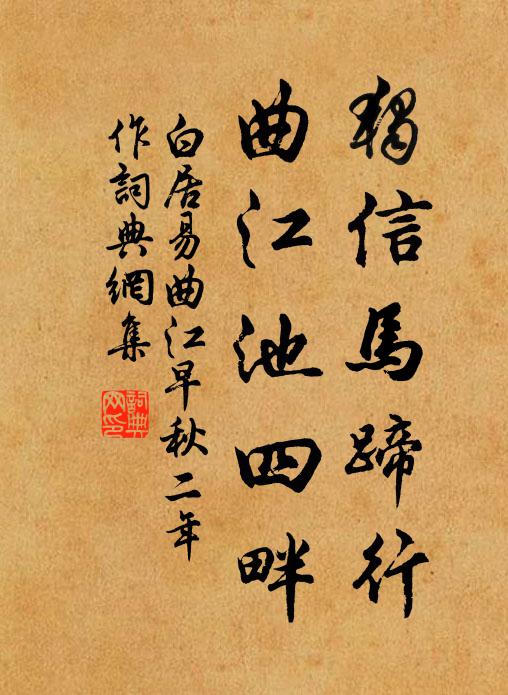 獨信馬蹄行
曲江池四畔
白居易曲江早秋二年
作詞典網集
詞典
网印